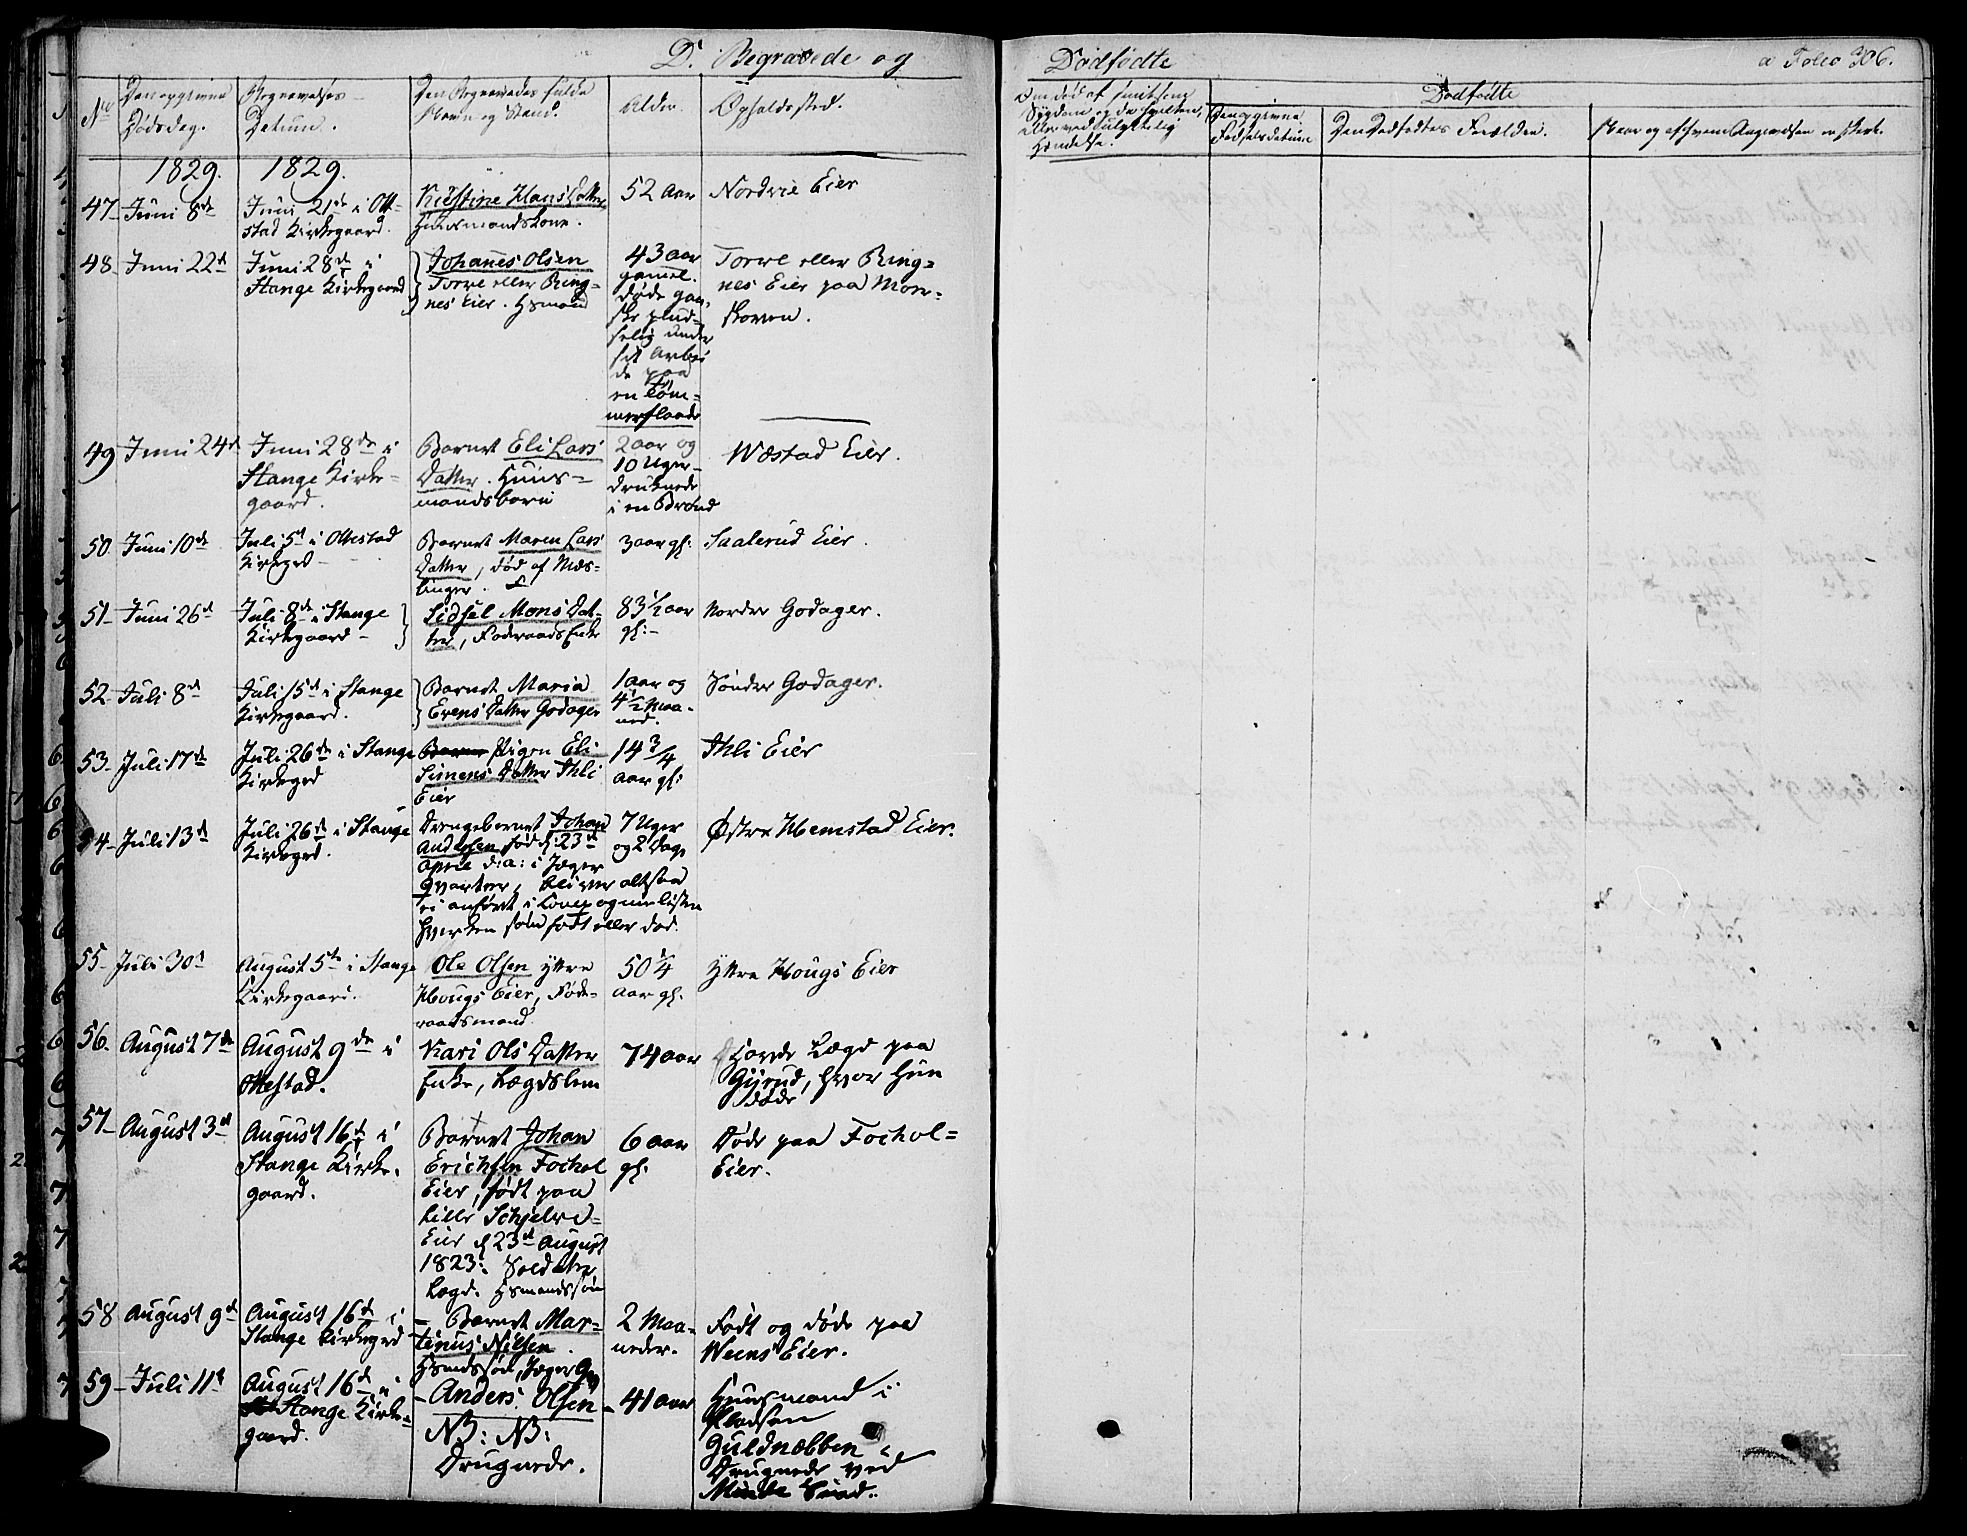 D. Begravede og
Dødfødte
a Folio 306.
No
Den opgivne Dødsdag.
Begravelses Datum.
Den Begravedes fulde Navn og Stand.
Alder.
Opholdssted.
Om død af smitsom Sygdom og da hvilken, eller ved ulykkelig Hændelse.
Dødfødte
Den opgivne Fødselsdatum
Den Dødfødtes Forældre.
Naar og af hvem Angivelsen er skeet.
1829. 1829.
47. Juni 8de
Juni 21de i Otte-
stad Kirkegaard.
Kiestine Hans Datter
Huusmandskone.
52 aar
Nordvie Eier
48. Juni 22d
Juni 28de i
Stange Kirkegaard
Johanes Olsen
Torve eller Ring-
nes Eier. Hsmand
43 aar
gamel.
døde gan-
ske plud-
selig under
sit Arbei
de paa
en Tøm-
merflaade
Torve eller Ring-
nes Eier paa More-
skoven.
49 Juni 24d
Juni 28de i
Stange Kirke-
gaard.
Barnet Eli Lars
Datter. Huus-
mandsbarn
2 aar og
10 Uger
druknede
i en Brønd
Wæstad Eier.
50. Juni 10de
Juli 5t i Ottestad
Kirkegrd
Barnet Maren Lars
Datter, død af Mæs-
linger.
3 aar gl:
Saalerud Eier.
51. Juni 26d
Juli 8de i Stange
Kirkegaard
Sidsel Mons Dat-
ter, Føderaads Enke
83 1/2 aar
gl:
Nordre Godager.
52. Juli 8de
Juli 15d i Stange
Kirkegaard.
Barnet Maria
Evens Datter Godager
1 aar og
4 1/2 Maa-
ned.
Søndre Godager.
53. Juli 17de
Juli 26de i Stange
Kirkegrd
Barnet Pigen Eli
Simens Datter Ihli
Eier
14 3/4
aar gl:
Ihli Eier
54. Juli 13d
Juli 26de i Stange
Kirkegrd.
Drengebarnet Johan
Andersen fød d: 23de
April d: a: i Jæger
Qvarteer, bliver altsaa
ei anført i
hverken som født eller død.
7 Uger
og 2 Dage
Østre Hemstad Eier.
55. Juli 30d
August 5te i Stange
Kirkegaard.
Ole Olsen yttre
Hougs Eier, Føde-
raadsmand
50 1/4
aar gl.
Yttre Hougs Eier
56. August 7de
August 9de i
Ottestad.
Kari Ols Datter
Enke, Lægdslem
74 aar
Hovde Lægd paa
Gyrud, hvor hun
døde
57. August 3d
August 16d i
Stange Kirke-
gaard.
Barnet Johan
Erichsen Fochol
Eier, født paa
Lille Schjelve-
Eier d 23d August
1823: Soldater
Lægd. Hsmandssøn
6 aar
gl.
Døde paa Fochol-
Eier.
58 August 9d
August 16d i
Stange Kirkegrd
Barnet Mar-
tinus Nilsen.
Hsmdssøn, Jæger Q
2 Maa-
neder.
Født og døde paa
Weens Eier.
59 Juli 11t
August 16d i
Stange Kirke-
gaard.
Anders Olsen
NB: NB:
Drugnede.
41 aar
Huusmand i
Pladsen
Guldnæbben
Drugnede ved
Minde Sund.